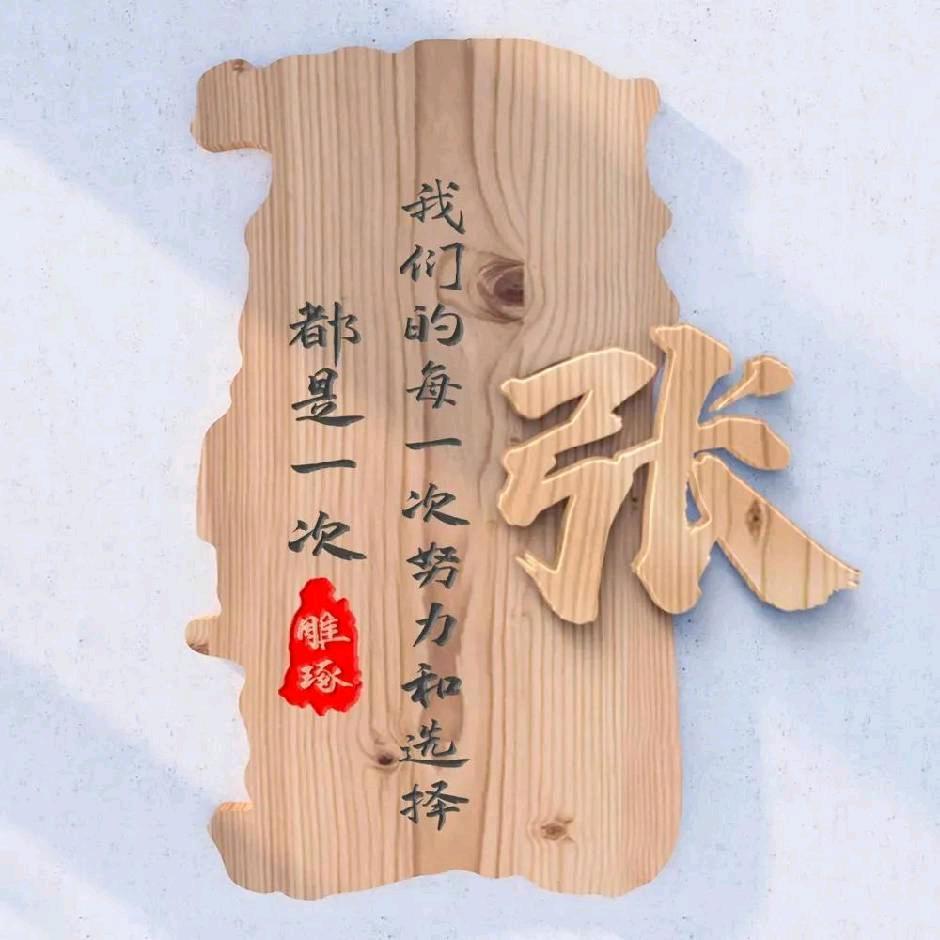 张
我们的每一次努力和选择
都是一次
雕琢